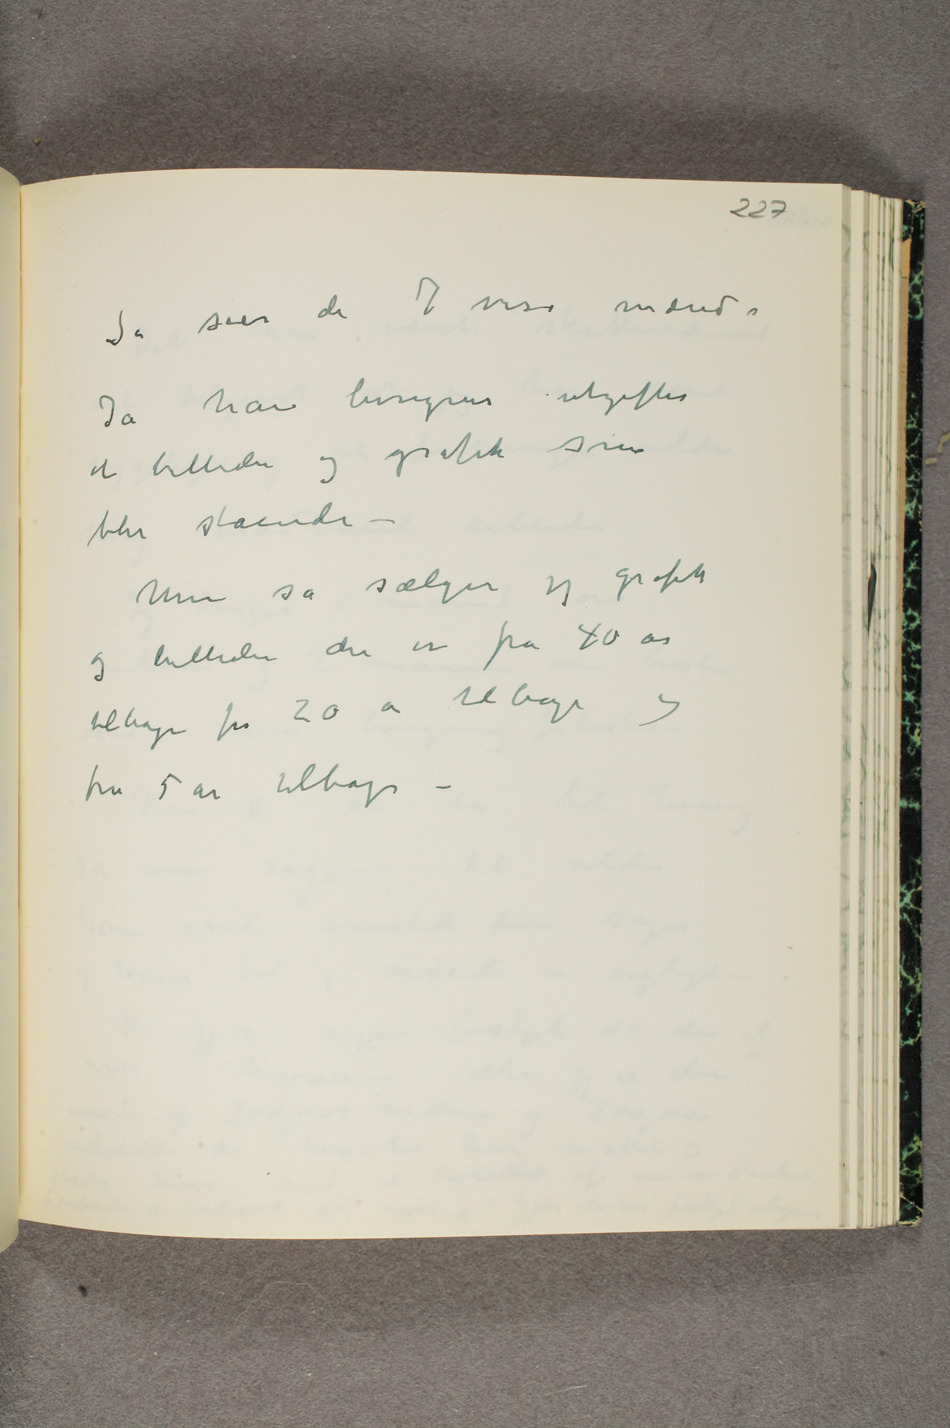 227
Så sier de 7 vise mænd:
Ja han beregner utgifter
et billeder og grafik som
blir staaende –
Men så sælger jeg grafik
og billeder der er fra 40 år
tilbage fra 20 år tilbage og
fra 5 år tilbage –